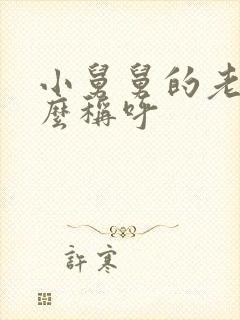 小舅舅的老
麼稱呼
許寒